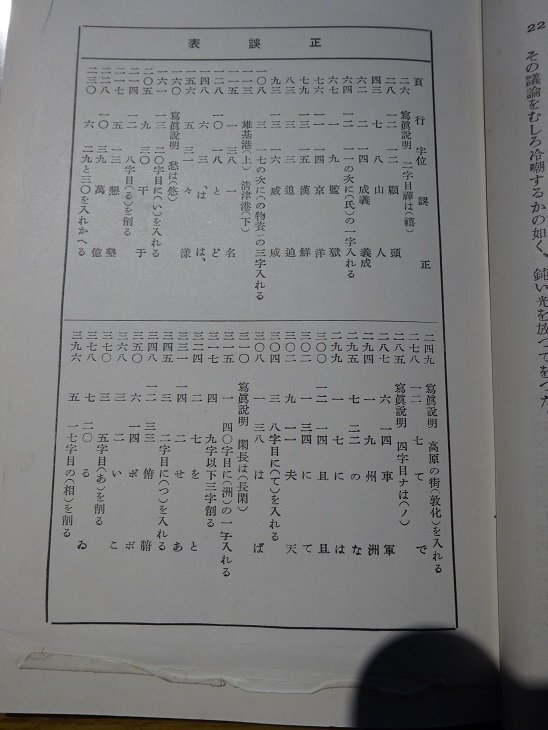 22
その議論をむしろ冷嘲するかの如く、鈍い光を放つてをつた
正誤表
頁 行 字位 誤 正
二六 寫眞說明 二字目禪は(禧)
二八 一二 一二 顧 頭
四三 七 八 山 人
六二 二 一四 成義 義成
六四 一二 一一の次に(氏)の一字入れる
六七 一一 九 鑑 獄
七六 一一 一四 京 洋
七九 三 一五 漢 鮮
八三 三 三 追 迫
九三 一六 威 咸
一〇八 三 一七の次に(の物資)の三字入れる
一一三 雄基港(上) 淸津港(下)
一一五 三八 一 名
一〇 八 と ど
一四八 六 三 、は は、
一五六 五 三一 々 漾
一六〇 寫眞說明 愁は(悠)
一三 二〇字目に(い)を入れる
二〇五 九 三〇 干 于
二一四 一二 八字目(る)を削る
二一七 五 一三 懇 墾
二二八 一〇 三九 萬 億
二三〇 六 二九と三〇を入れかへる
二四九 寫眞說明 高原の街(敦化)を入れる
二七八 一二 七 て で
二八五 寫眞說明 四字目ナは(ノ)
二八七 六 一四 車 軍
二九四 一 九 州 洲
二九五 七 二二 の な
二九九 一 七 に は
三〇〇 一二 一四 且
三〇二 一 三四 に て
三〇二 九 一一 夫 天
三〇四 三 八字目に(て)を入れる
三〇八 一 三八 は ば
三一〇 寫眞說明 閑長は(長閑)
三一五 一 四〇字目に(洲)の一字入れる
三一七 四 九字以下三字削る
三二四 二 七 を と
三三一 一四 二 せ あ
三四五 三 二字目に(つ)を入れる
三四八 一二 三三 俯 腑
三五〇 六 一四 ボ ポ
三六八 三 二 い こ
三七〇 三 五字目(あ)を削る
三七八 七 二〇 る ゐ
三九六 五 一七字目の(相)を削る